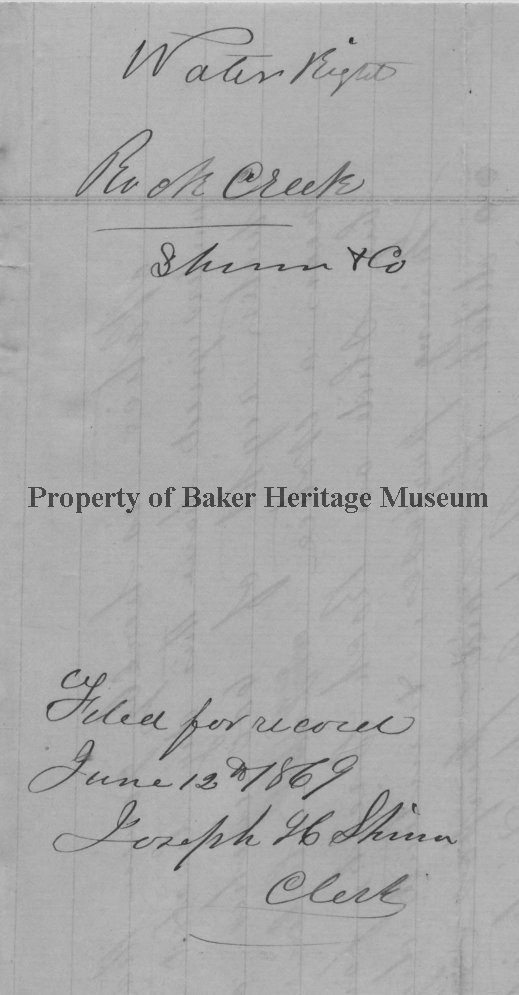 Water Right
Rock Creek
Shinn & Co
Property of Baker Heritage Museum
Filed for record
June 12th 1869
Joseph H Shinn
Clerk